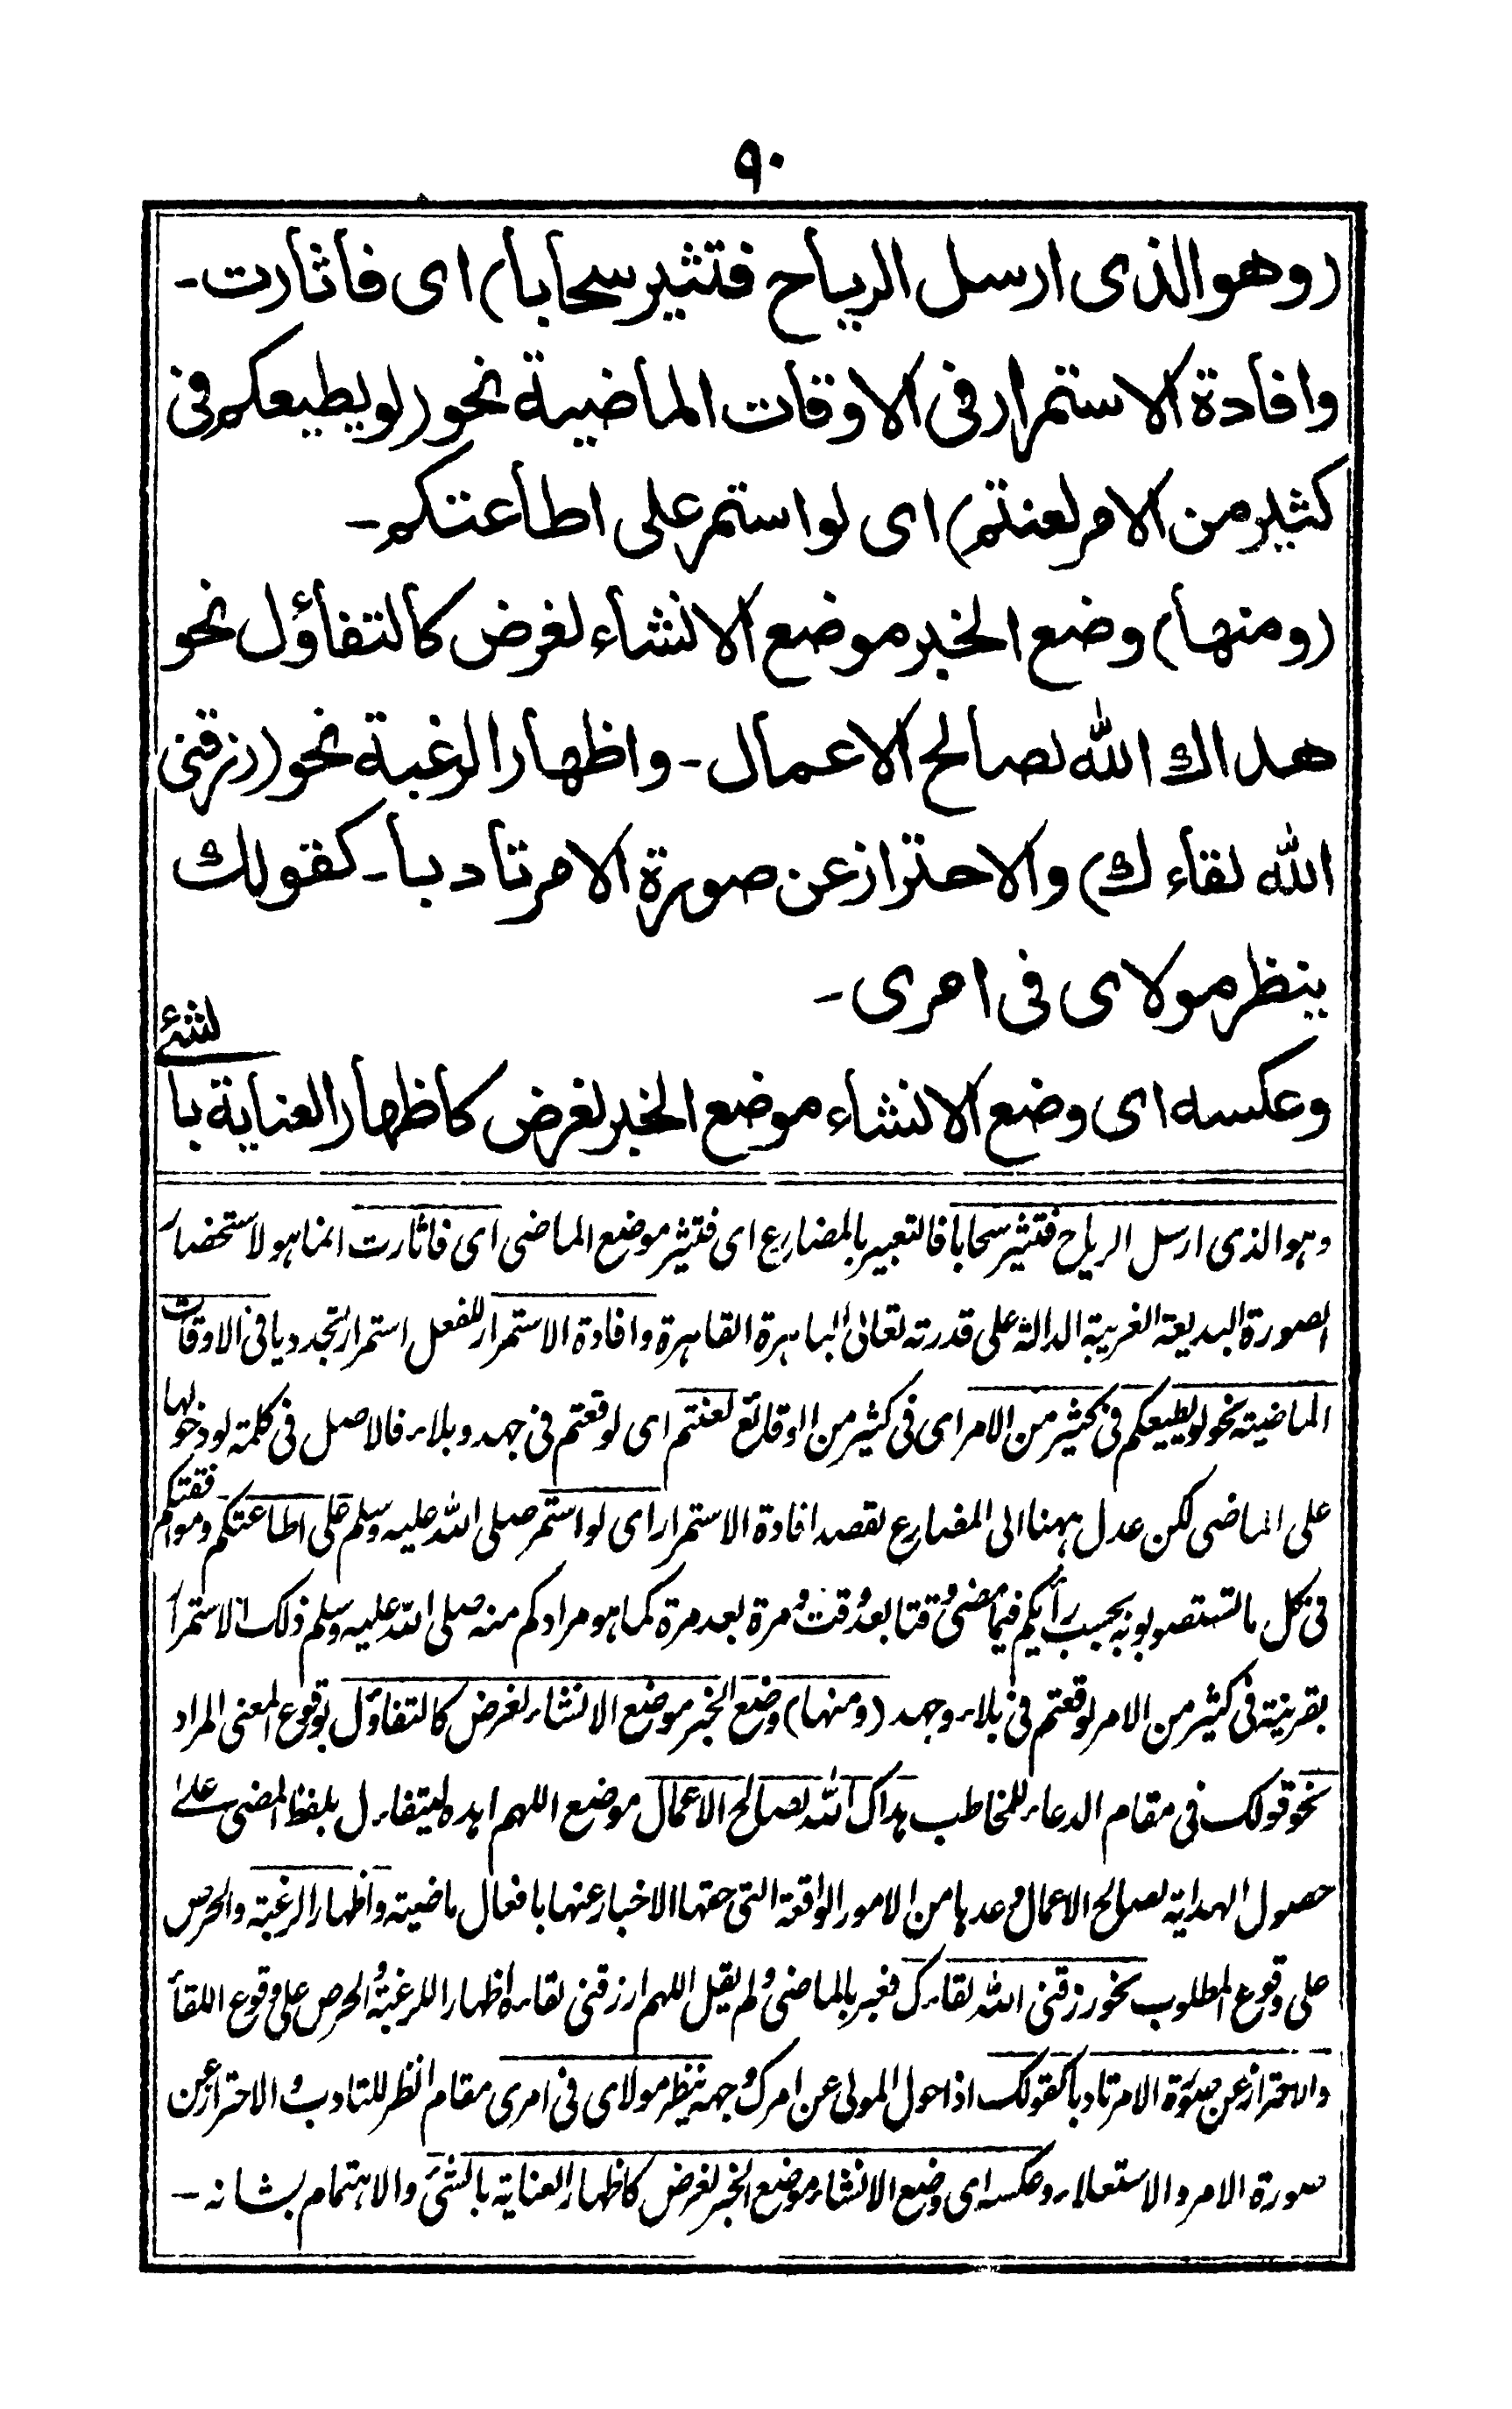 ٩٠
(وهو الذى ارسل الرياح فتثير سحابا) اى فاثارت-
وافادة الاستمرار فى الاوقات الماضية نحو (لو يطيعكم فى
كثير من الامر لعنتم) اى لو استمر على اطاعتكم-
(ومنها) وضع الخبر موضع الانشاء لغرض كالتفاؤل نحو
هداك الله لصالح الاعمال- واظهار الرغبة نحو (رزقنى
الله لقاءك) والاحتراز عن صورة الامر تادبا- كقولك
ينظر مولاى فى امرى-
وعكسه اى وضع الانشاء موضع الخبر لغرض كاظهار العناية با لشئ
وهو الذى ارسل الرياح فتثير سحابا فالتعبير بالمضارع اى فتثير موضع الماضى اى فاثارت انما هو لاستحضار
الصورة البديعة الغريبة الدالة على قدرته تعالى الباهرة القاهرة وافادة الاستمرار للفعل استمرار تجدديا فى الاوقات
الماضية نحو لو يطيعكم فى كثير من الامر اى فى كثير من الوقائع لعنتم اى لوقعتم فى جهد وبلاء فالاصل فى كلمة لو دخولها
على الماضى لكن عدل ههنا الى المضارع لقصد افادة الاستمرار اى لو استمر صلى الله عليه وسلم على اطاعتكم وموافقتكم
فى كل ما تستصوبونه بحسب رأيكم فيما مضى وقتا بعد وقت ومرة بعد مرة كما هو مرادكم منه صلى الله عليه وسلم ذلك الاستمرار
بقرينة فى كثير من الامر لوقعتم فى بلاء وجهد (ومنها) وضع الخبر موضع الانشاء لغرض كالتفاؤل بوقوع المعنى المراد
نحو قولك فى مقام الدعاء للمخاطب هداك الله لصالح الاعمال موضع اللهم اهده ليتفاءل بلفظ المضى على
حصول الهداية لصالح الاعمال وعدها من الامور الواقعة التى حقها الاخبار عنها بافعال ماضية واظهار الرغبة والحرص
على وقوع المطلوب نحو رزقنى الله لقاءك فعبر بالماضى ولم يقل اللهم ارزقنى لقاءه اظهارا للرغبة والحرص على وقوع اللقأ
والاحتراز عن صورة الامر تادبا كقولك اذا حول المولى عن امرك وجهه ينظر مولاى فى امرى مقام انظر للتادب والاحتراز عن
صورة الامر والاستعلاء وعكسه اى وضع الانشاء موضع الخبر لغرض كاظهار العناية بالشئ والاهتمام بشانه-